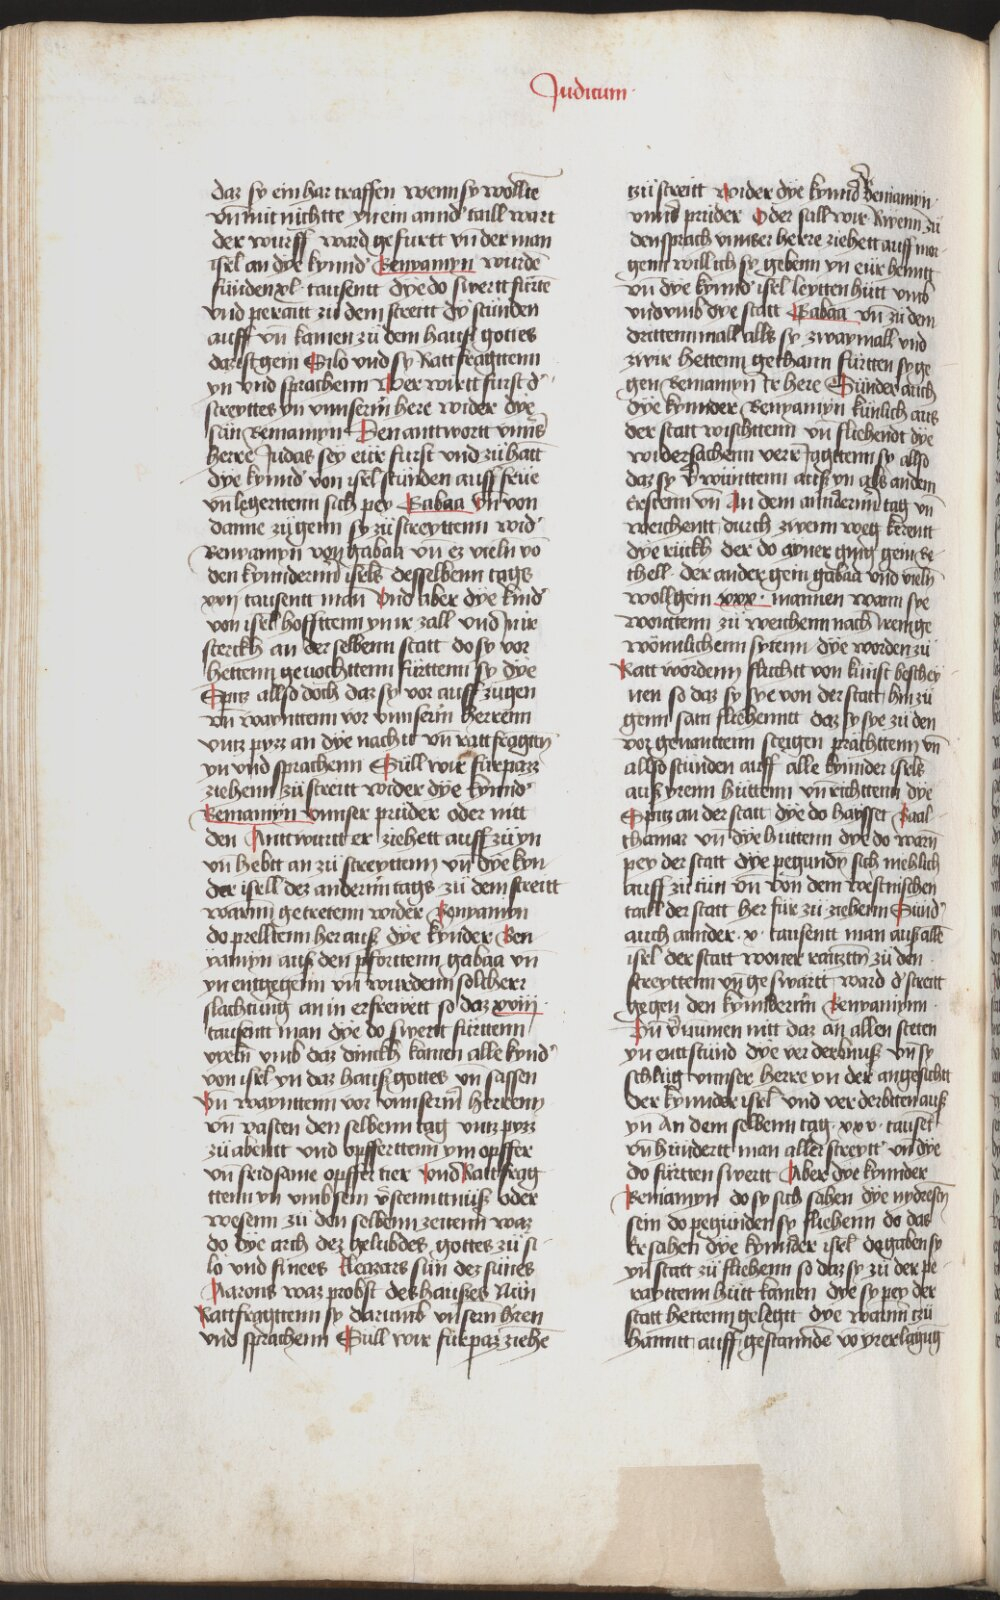 Judicum
daz sy ein har traffen wenn sy wolltē
vn̄ mit nichtte yn ein annd' taill wart
der wurff ward gefurtt vn̄ der man
isrl an dye kynnd' Benyamyn wurdē
fünden xl· tausentt dye do swertt fürtē
vnd peraitt zu dem streitt dy stünden
auff vn̄ kamen zu dem hauß gottes
daz ist gein Silo vnd sy Ratt fragttenn
yn vnd sprachenn Wer wirtt fürst d'
streyttes yn vnnserm̄ here wider dye
sün Beniamyn Den anttwortt vnns'
herre Judas sey eür fürst vnd zü hatt
dye kynnd' von isrl stünden auff früe
vn̄ legerttenn sich pey Gabaa Vn̄ von
danne zügenn sy zü streyttenn wid'
Benyamyn von gabaa vn̄ ez vieln vō
den kynnderm̄ isrls desselbenn tags
xxij tausentt man Vnd aber dye kind'
von isrl hofften yn ir zall vnd yn ir
sterckh an der selbenn statt do sy vor
hettenn gevochttenn fürttenn sy dye
Spitz allso doch daz sy vor auff zugen
vn̄ waynttenn vor vnnserm̄ herrenn
vntz pyzz an dye nachtt vn̄ ratt fragttn̄
yn vnd sprachenn Süll wir fürpazz
ziehenn zü streitt wider dye kynnd'
Beniamyn vnnser prüder oder nitt
den Anttwurtt er ziehett auff zü yn
vn̄ hebtt an zü streyttenn vn̄ dye kyn
der isrell dez anderm̄ tags zü dem streitt
warnn getretenn wider Benyamyn
do prelltenn her auß dye kynder Ben
yamyn auß den pforttenn gabaa vn̄
yn entgegenn vn̄ wurdenn solcherr
slachtüng an in erfrewett so daz xviij
tausentt man dye do swertt fürttenn
vyeln vmb daz dinckh kamen alle kynd'
von isrl yn daz hauß gottes vn̄ sassen
Vn̄ waynttenn vor vnnserm̄ herrenn
vn̄ vasten den selbenn tag vntz pyzz
zü abentt vnd opfferttenn ym opffer
vn̄ fridsame opffer tier Vnd Rattfrag
ttenn yn vmb sein v̄stenttnüß oder
wesenn zü den selbenn zeitenn waz
do dye arch dez gelubdes gottes zü si
lo vnd finees Eleazars sün dez sünes
Aarons waz probst des haußes Nün
Rattfragttenn sy darumb vnsern h̄ren
vnd sprachenn Süll wir fürpaz ziehē
tzü streitt wider dye kynnd' Beniamyn
vnns' prüder Oder sall wir Rwenn zü
den sprach vnnser herre ziehett auff mor
genn will ich sy gebenn yn eür henntt
vn̄ dye kynnd' isrl leytten hütt vmb
vnd vmb dye statt Gabaa vn̄ zü dem
drittenn mall alls sy zwaymall vnd
zwir hettenn gethann fürtten sy ge
gen Beniamyn ir here Sünder auch
dye kynnder Benyamyn künlich aus
der statt wischttenn vn̄ fliehendt dye
widersachenn verr Jagttenn sy allso
daz sy v̄wünttenn auß yn als an dem
Erstenn vn̄ An dem annderm̄ tag vn̄
weichentt durch zwenn weg kerentt
dye rückh der do ayner ging gein be
thell· der ander gein gabaa vnd vieln
wollgein xxx· mannen wann sye
wonttenn zü weichenn nach
wönnlichenn sytenn dye worden zü
Ratt wordenn fluchtt von künst beschey
nen so daz sy sye von der statt hin zü
genn sam fliehenntt daz sy sye zü den
vor genanttenn steigen prachttenn vn̄
allso stünden auff alle kynnder isrls
auß yrenn hüttenn vn̄ richttenn dye
Spitz an der statt dye do haysset Baal
thamar vn̄ dye huttenn dye do warn
pey der statt dye pegundn sich mehlich
auff zü tün vn̄ von dem westnischen
taill der statt her für zü ziehenn Sünd'
auch annder· x· tausentt man auß allē
isrl der statt woner raitztn zü den
streyttenn vn̄ geswärtt ward d' streitt
gegen den kynnderm̄ Benyamynn
Vn̄ v̄numen nitt daz an allen steten
yn enttstünd dye verderbnuß vn̄ sy
schlüg vnnser herre yn der angesichtt
der kynnder isrl vnd verderbtten auß
yn An dem selbenn tag· xxv· tausēt
vn̄ hündertt man aller streytt' vn̄ dye
do fürtten swertt Aber dye kynnder
Beniamyn do sy sich sahen dye nydresn̄
sein do pegünden sy fliehenn do das
Ersahen dye kynnder isrl do gaben sy
yn statt zü fliehenn so daz sy zü der pe
rayttenn hütt kamen dye sy pey der
statt hettenn gelegtt dye warnn tzü
hanntt auff gestanndē vō yrer lagüg